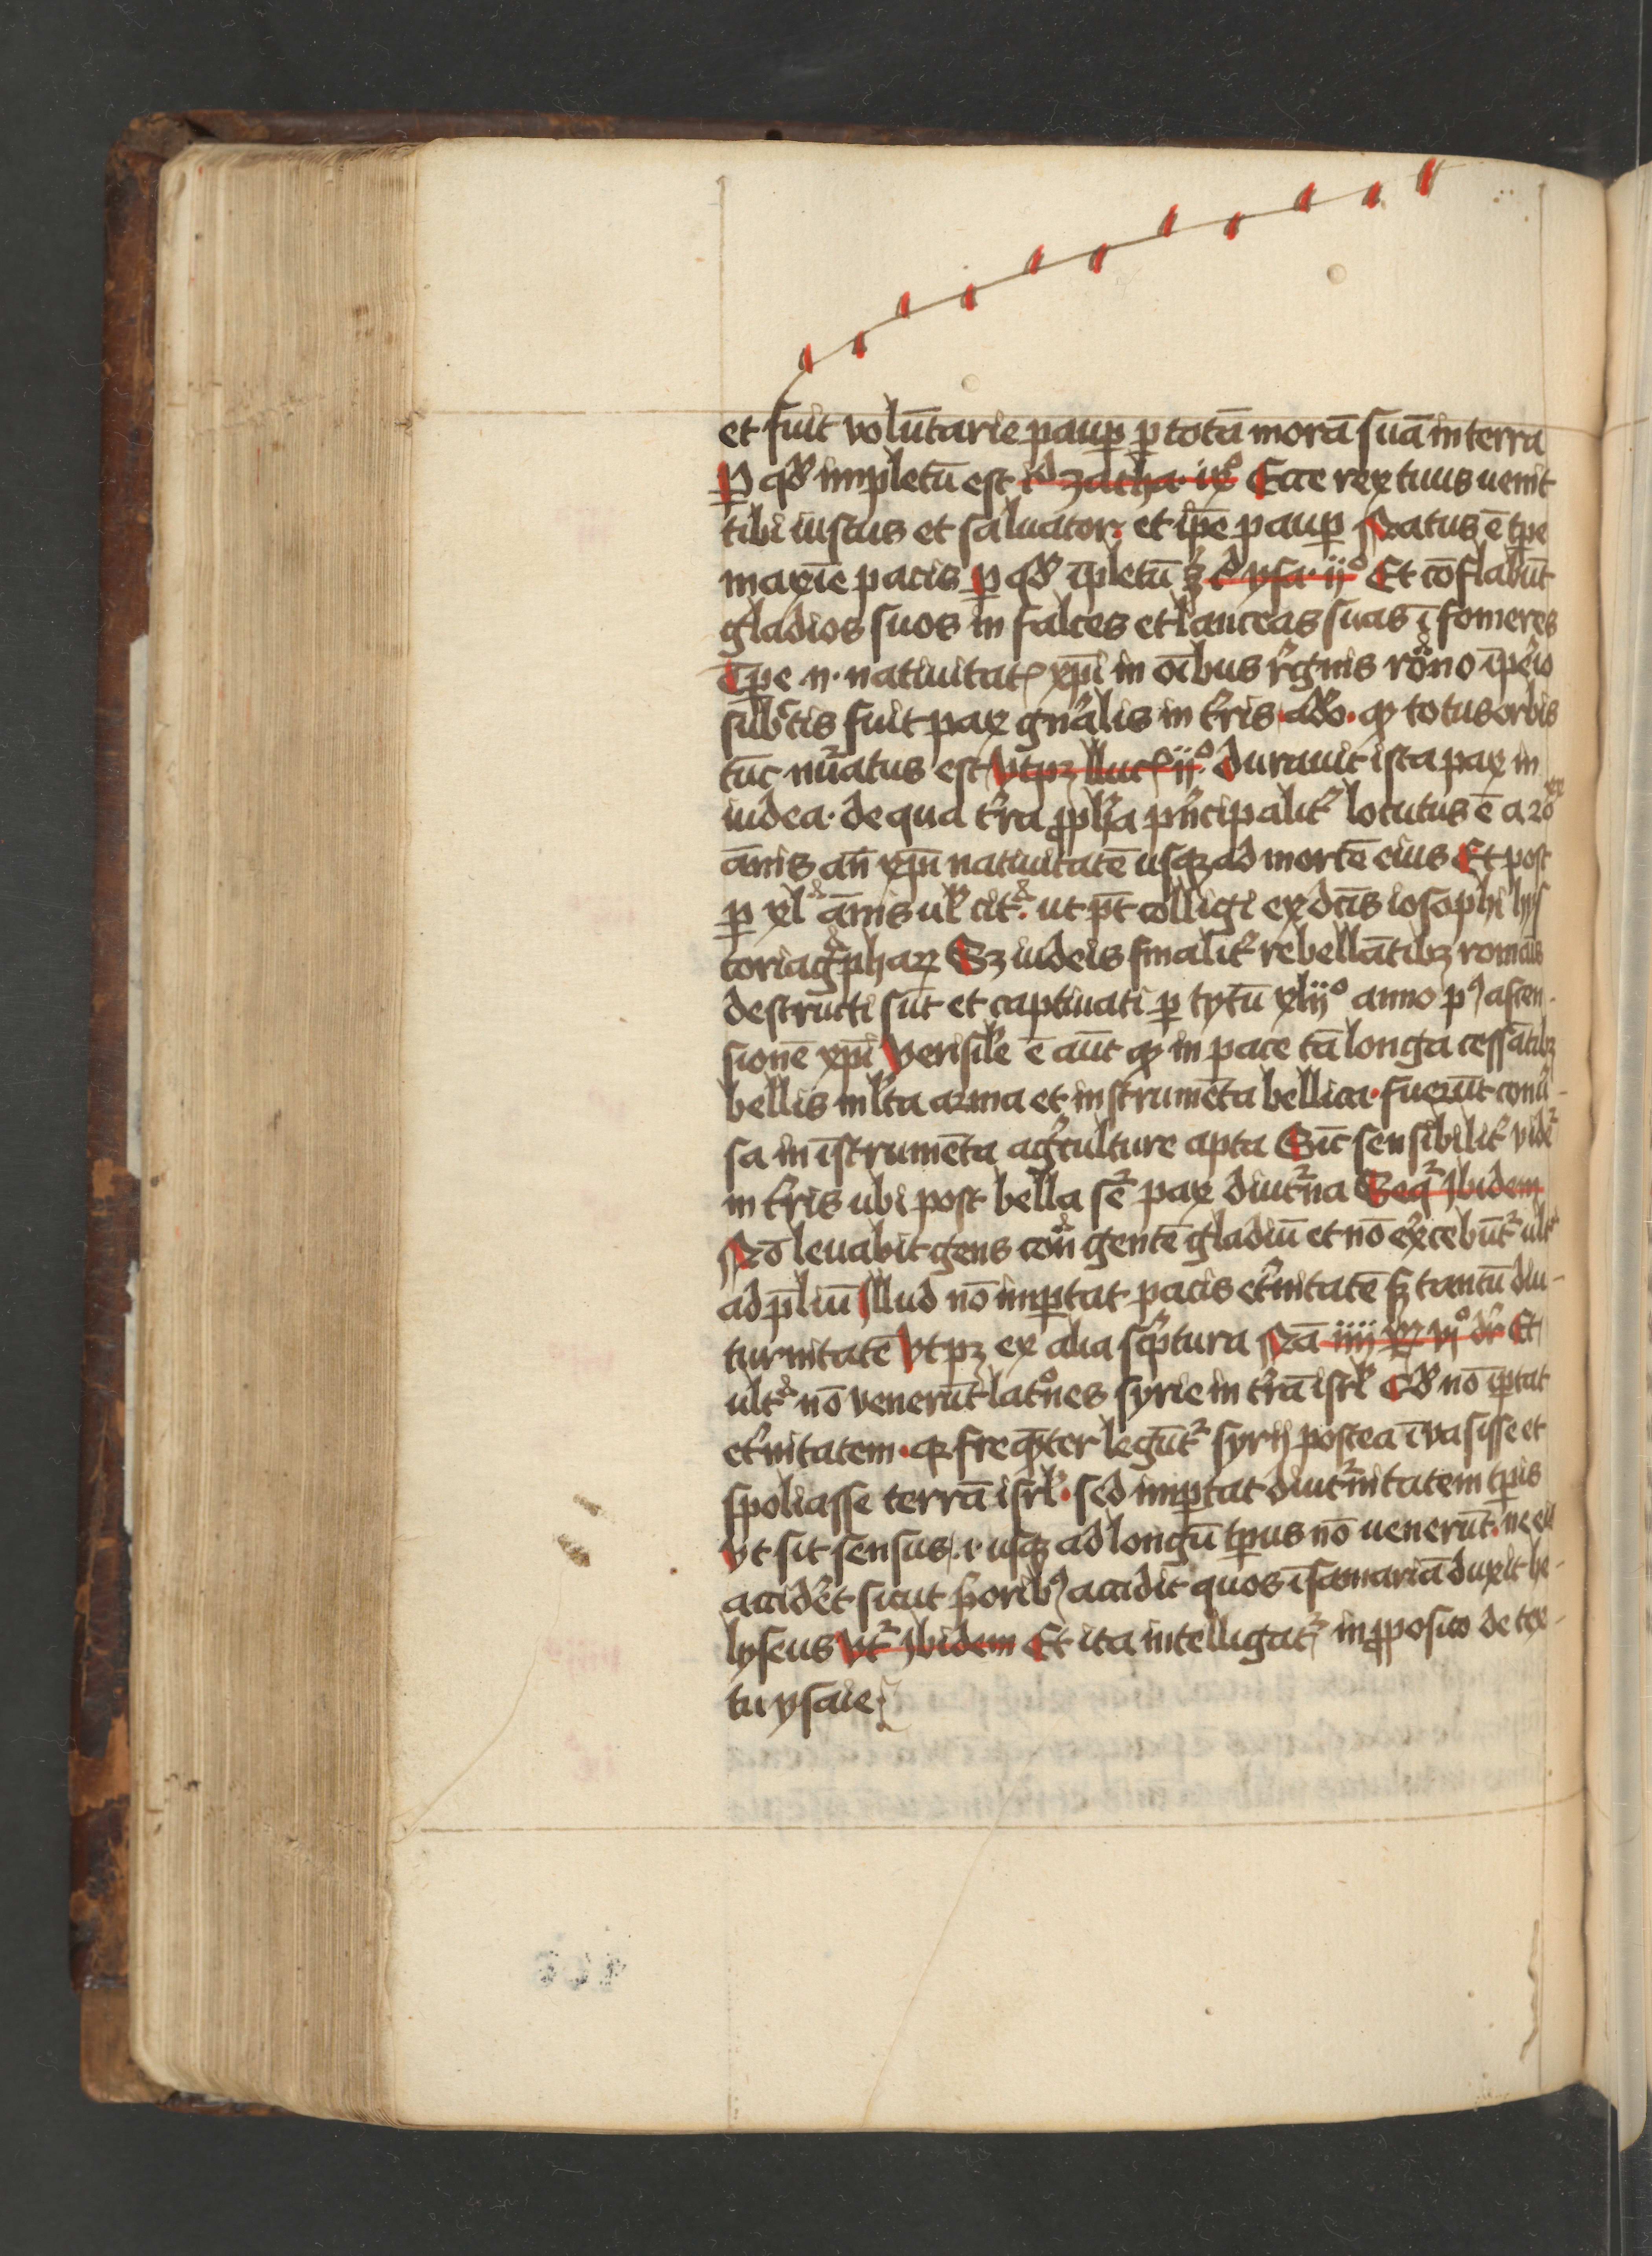 et fuit volūtarie paup̲ p̲ totā morā suā in terra
P̲ qď impletū est id zacha· ixͦ Ecce rex tuus uenit
tibi iustus et saluator· et ip̄e paup̲ Natus ē tp̄e
maxīe pacis p̲ qď īpletū ꝫ ysa· ijͦ Et cōflabūt
gladios suos in falces et lanceas suas ī fomeres
Tp̄e n· natiuitatꝭ xp̄i in oībus regnis rōno īperio
subctis fuit pax gn̄alis in tr̄is adeo· qꝫ totus orbis
tūc nūatus est vt pꝫ luc ijͦ· durauit ista pax in
iudea· de qua tr̄a ꝓph̄a pn̄cipalit̄ locutus ē a 20
annis an̄ xp̄i natiuitatē usqꝫ ad mortē eius Et post
p̲ xl annis uł citͣ· ut pt̄ colligi ex dc̄is iosophi hys
toriagͣphaꝝ Sꝫ iudeis finalit̄ rebellātibꝫ romāis
destructi sūt et captiuati p̲ tytū xlijͦ anno pꝰ ascen-
sionē xp̄i Verisile ē aūt qꝫ in pace tā longa cessātibꝫ
bellis ml̄ta arma et instrumēta bellica· fuerūt conū-
sa in īstrumēta agͥculture apta Sic̄ sensibilit̄ vidēᷣ
in tr̄is ubi post bella seᷣ pax diutᷣna Seqᷣ Ibidem
Nō leuabit gens conͣ gentē gladiū et nō ex̄cebūtᷣ ultͣ
ad p̄liū Illud nō imp̲tat pacis etn̄itatē sꝫ tantū diu-
turnitatē Vt pꝫ ex alia scͥptura Nā iiij ꝶ vjͦ dr̄ Et
ultͣ nō venerūt latͦnes syrie in tr̄ā isrł Qď nō īp̲tat
etn̄itatem· qꝫ freqn̄ter legūtᷣ syrij postea īuasisse et
spoliasse terrā isrł· sed imp̲tat diutᷣnitatem tp̄is
Vt sit sensus· i· usqꝫ ad longū tp̄us nō uenerūt· ne eis
accideret sicut prioribꝰ accidit quos ī samariā duxit he-
lyseus Vtᷣ Ibidem Et ita intelligatᷣ in ꝓposito de tex-
tu ysaie